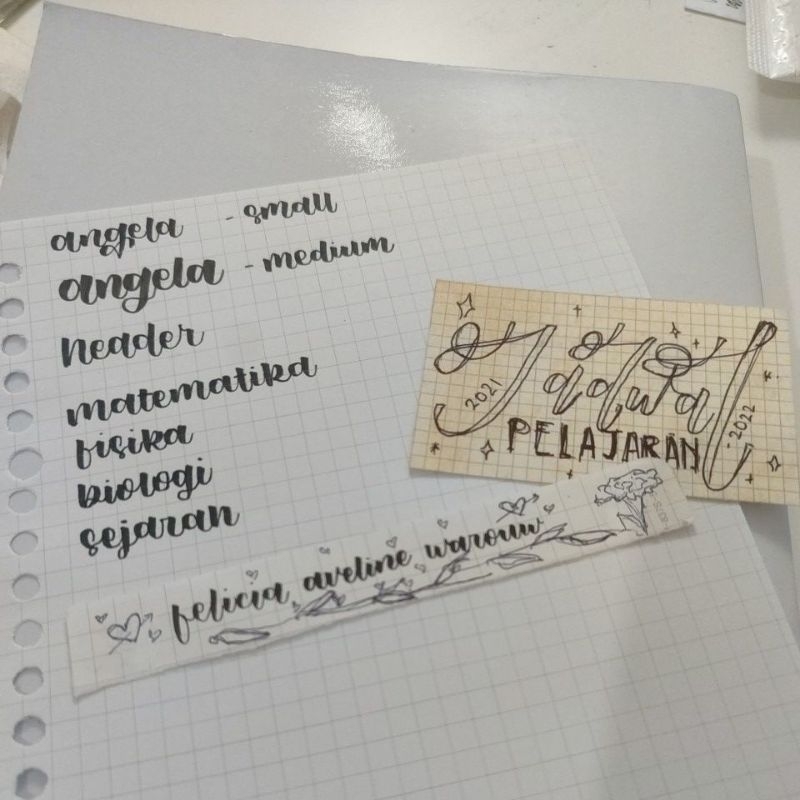 angela - small
angela - medium
header
matematika
fisika
biologi
sejarah
Jadwal
2021
2022
PELAJARAN
felicia aveline warouw